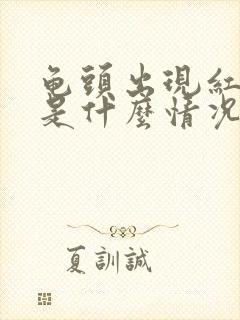 龟頭出現紅
是什麼情況
夏訓誠